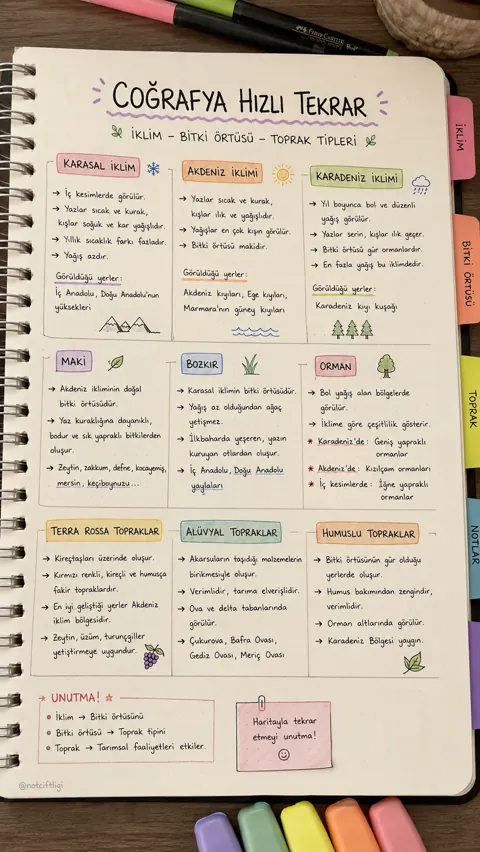 COĞRAFYA HIZLI TEKRAR
İKLİM – BİTKİ ÖRTÜSÜ – TOPRAK TİPLERİ
KARASAL İKLİM
→ İç kesimlerde görülür.
→ Yazlar sıcak ve kurak,
kışlar soğuk ve kar yağışlıdır.
→ Yıllık sıcaklık farkı fazladır.
→ Yağış azdır.
Görüldüğü yerler:
İç Anadolu, Doğu Anadolu'nun
yüksekleri
AKDENİZ İKLİMİ
→ Yazlar sıcak ve kurak,
kışlar ılık ve yağışlıdır.
→ Yağışlar en çok kışın görülür.
→ Bitki örtüsü makidir.
Görüldüğü yerler:
Akdeniz kıyıları, Ege kıyıları,
Marmara'nın güney kıyıları
KARADENİZ İKLİMİ
→ Yıl boyunca bol ve düzenli
yağış görülür.
→ Yazlar serin, kışlar ılık geçer.
→ Bitki örtüsü gür ormanlardır.
→ En fazla yağış bu iklimdedir.
Görüldüğü yerler:
Karadeniz kıyı kuşağı
MAKİ
→ Akdeniz ikliminin doğal
bitki örtüsüdür.
→ Yaz kuraklığına dayanıklı,
bodur ve sık yapraklı bitkilerden
oluşur.
→ Zeytin, zakkum, defne, kocayemiş,
mersin, keçiboynuzu...
BOZKIR
→ Karasal iklimin bitki örtüsüdür.
→ Yağış az olduğundan ağaç
yetişmez.
→ İlkbaharda yeşeren, yazın
kuruyan otlardan oluşur.
→ İç Anadolu, Doğu Anadolu
yaylaları
ORMAN
→ Bol yağış alan bölgelerde
görülür.
→ İklime göre çeşitlilik gösterir.
* Karadeniz'de: Geniş yapraklı
ormanlar
* Akdeniz'de: Kızılçam ormanları
* İç kesimlerde: İğne yapraklı
ormanlar
TERRA ROSSA TOPRAKLAR
→ Kireçtaşları üzerinde oluşur.
→ Kırmızı renkli, kireçli ve humusça
fakir topraklardır.
→ En iyi geliştiği yerler Akdeniz
iklim bölgesidir.
→ Zeytin, üzüm, turunçgiller
yetiştirmeye uygundur.
ALÜVYAL TOPRAKLAR
→ Akarsuların taşıdığı malzemelerin
birikmesiyle oluşur.
→ Verimlidir, tarıma elverişlidir.
→ Ova ve delta tabanlarında
görülür.
→ Çukurova, Bafra Ovası,
Gediz Ovası, Meriç Ovası
HUMUSLU TOPRAKLAR
→ Bitki örtüsünün gür olduğu
yerlerde oluşur.
→ Humus bakımından zengindir,
verimlidir.
→ Orman altlarında görülür.
→ Karadeniz Bölgesi yaygın.
* UNUTMA! ☆
• İklim → Bitki örtüsünü
• Bitki örtüsü → Toprak tipini
• Toprak → Tarımsal faaliyetleri etkiler.
Haritayla tekrar
etmeyi unutma!
☺
@notciftligi
İKLİM
BİTKİ ÖRTÜSÜ
TOPRAK
NOTLAR